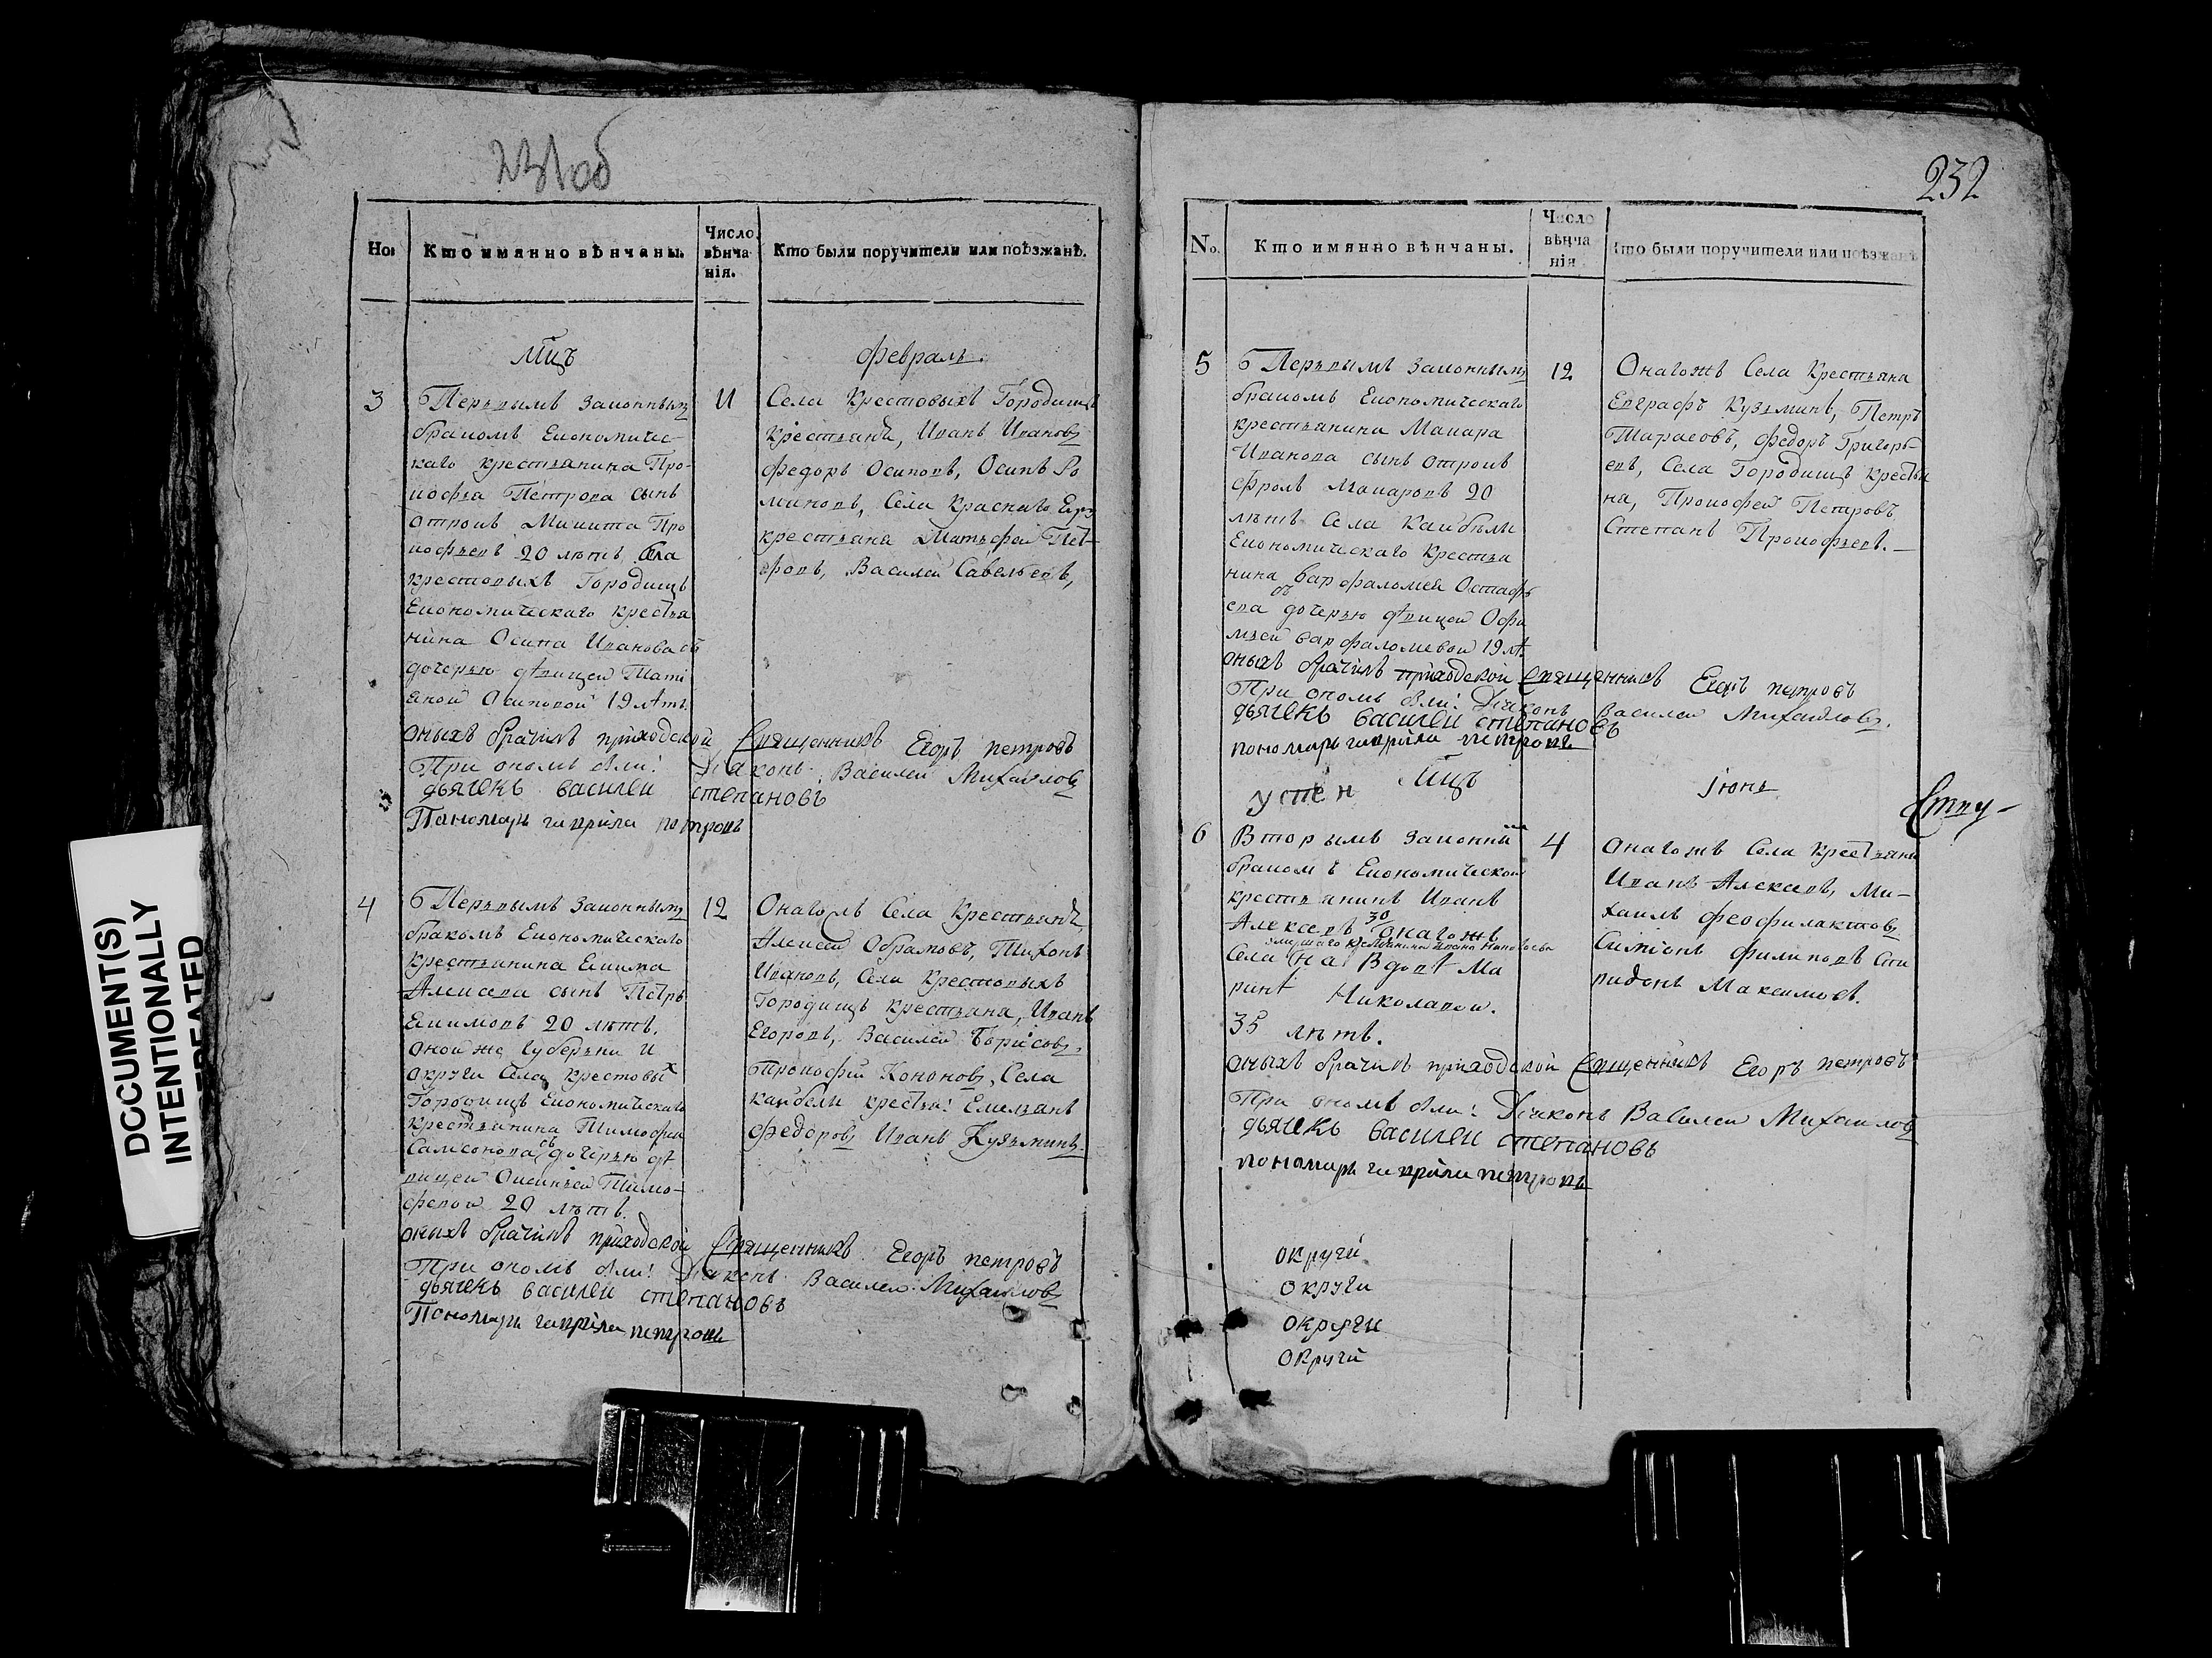 231об
Но:
Кто имянно вѣнчаны.
Число вѣнчанія.
Кто были поручители или поѣзжанѣ.
Мцъ
февраль.
3
Перьвымъ законнымъ
бракомъ Економичес-
каго крестьянина Про-
кофья Петрова сынъ
отрокъ Микита Про
кофьевъ 20 лѣтъ, села
крестовыхъ Городищъ
Економическаго крестья
нина Осипа Иванова съ
дочерью дѣвицей Тать
яной Осиповой 19 лѣтъ.
11
Села Крестовыхъ Городищъ
крестьянѣ, Иванъ Ивановъ
федоръ Осиповъ, Осипъ Ро
мановъ, Села Краснаго Яру
крестьяна Матьфей Пет-
ровъ, Василей Савельевъ,
оныхъ брачилъ приходской Священникъ Егоръ петровъ
При ономъ были: Діаконъ Василей Михаиловъ
дьячекъ василеи степановъ
Паномарь гаврила петровъ
4
Перьвымъ законнымъ
бракомъ Економическаго
крестьянина Екима
Алексеева сынъ Петръ
Екимовъ 20 лѣтъ.
оной же губерьни и
округи Села крестовых
Городищъ Економическаго
крестьянина Тимофея
Самсонова съ дочерью дѣ
вицей Оксиньей Тимо-
феевой 20 лѣтъ.
12
Онагожъ Села Крестьянѣ,
Алексей Обрамовъ, Тихонъ
Ивановъ, Села Крестовыхъ
Городищъ крестьяна, Иванъ
Егоровъ, Василей Борисовъ,
Прокофий Кононовъ, Села
кайбелы крестья: Емельянъ
федоровъ Иванъ Кузьминъ.
оныхъ брачилъ приходской Священникъ Егоръ петровъ
При ономъ были: Діаконъ Василеи Михаиловъ
дьячекъ василеи степановъ
Пономарь гаврила петровъ
232
No.
Кто имянно вѣнчаны.
Число вѣнчанія
Кто были поручители или поѣзжанѣ
5
Перьвымъ законнымъ
бракомъ Економическаго
крестьянина Макара
Иванова сынъ отрокъ
фролъ Макаровъ 20
лѣтъ Села Каибѣлы
Економическаго крестья
нина варфаломея Остафь
ева съ дочерью дѣвицей Офи
мьей варфаломевой 19 лѣ.
12
Онагожъ Села Крестьяна
Евграфъ Кузьминъ, Петръ
Тарасовъ, федоръ Григорь-
евъ, Села Городищъ крестья
на, Прокофей Петровъ
Степанъ Прокофьевъ.—
оныхъ брачилъ приходской Священникъ Егоръ петровъ
При ономъ были: Діаконъ Василеи Михаиловъ.
дьячекъ василеи степановъ
пономарь гаврила петровъ
Мцъ
Іюнь
6
Вторымъ законнымъ
бракомъ Економической
крестьянинъ Иванъ
Алексеевъ 30 онагожъ
Села на Вдовѣ Ма
ринѣ Николаевой.
35 лѣтъ.
4
Онагожъ Села Крестьяна
Иванъ Алексеевъ, Ми-
хаилъ феофилактовъ
Симіонъ филиповъ Спи
ридонъ Максимовъ.
оныхъ брачилъ приходской Священникъ Егоръ петровъ
При ономъ были: Діаконъ Василеи Михаиловъ
дьячекъ василеи степановъ
пономарь гаврила петровъ
округи
округи
округи
округи
DOCUMENT(S)
INTENTIONALLY